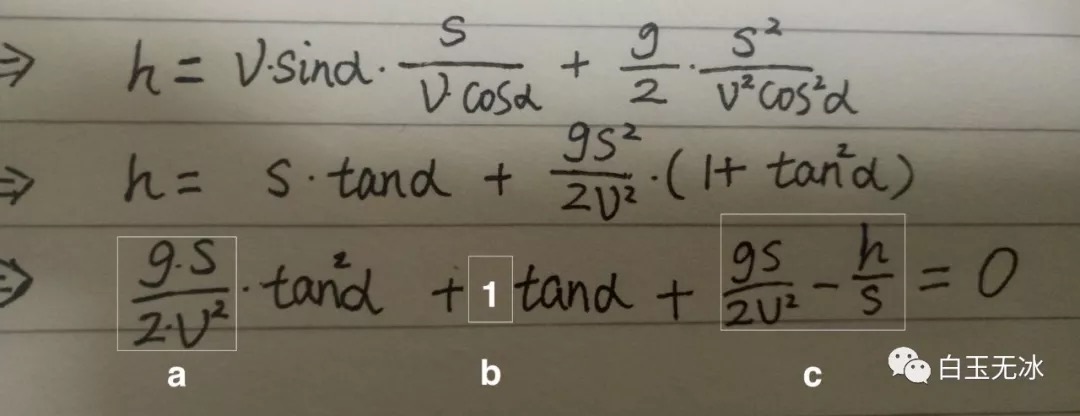 ⇒ h = v·sinα · s/(v·cosα) + g/2 · s²/(v²cos²α)
⇒ h = s·tanα + gs²/(2v²) · (1 + tan²α)
⇒ g·s/(2·v²) · tan²α + 1 tanα + gs/(2v²) − h/s = 0
a b c
白玉无冰